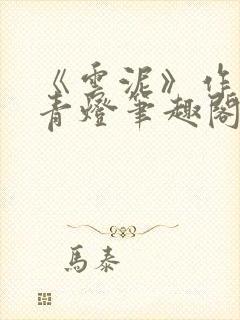 《雲泥》作
青燈筆趣閣
馬泰